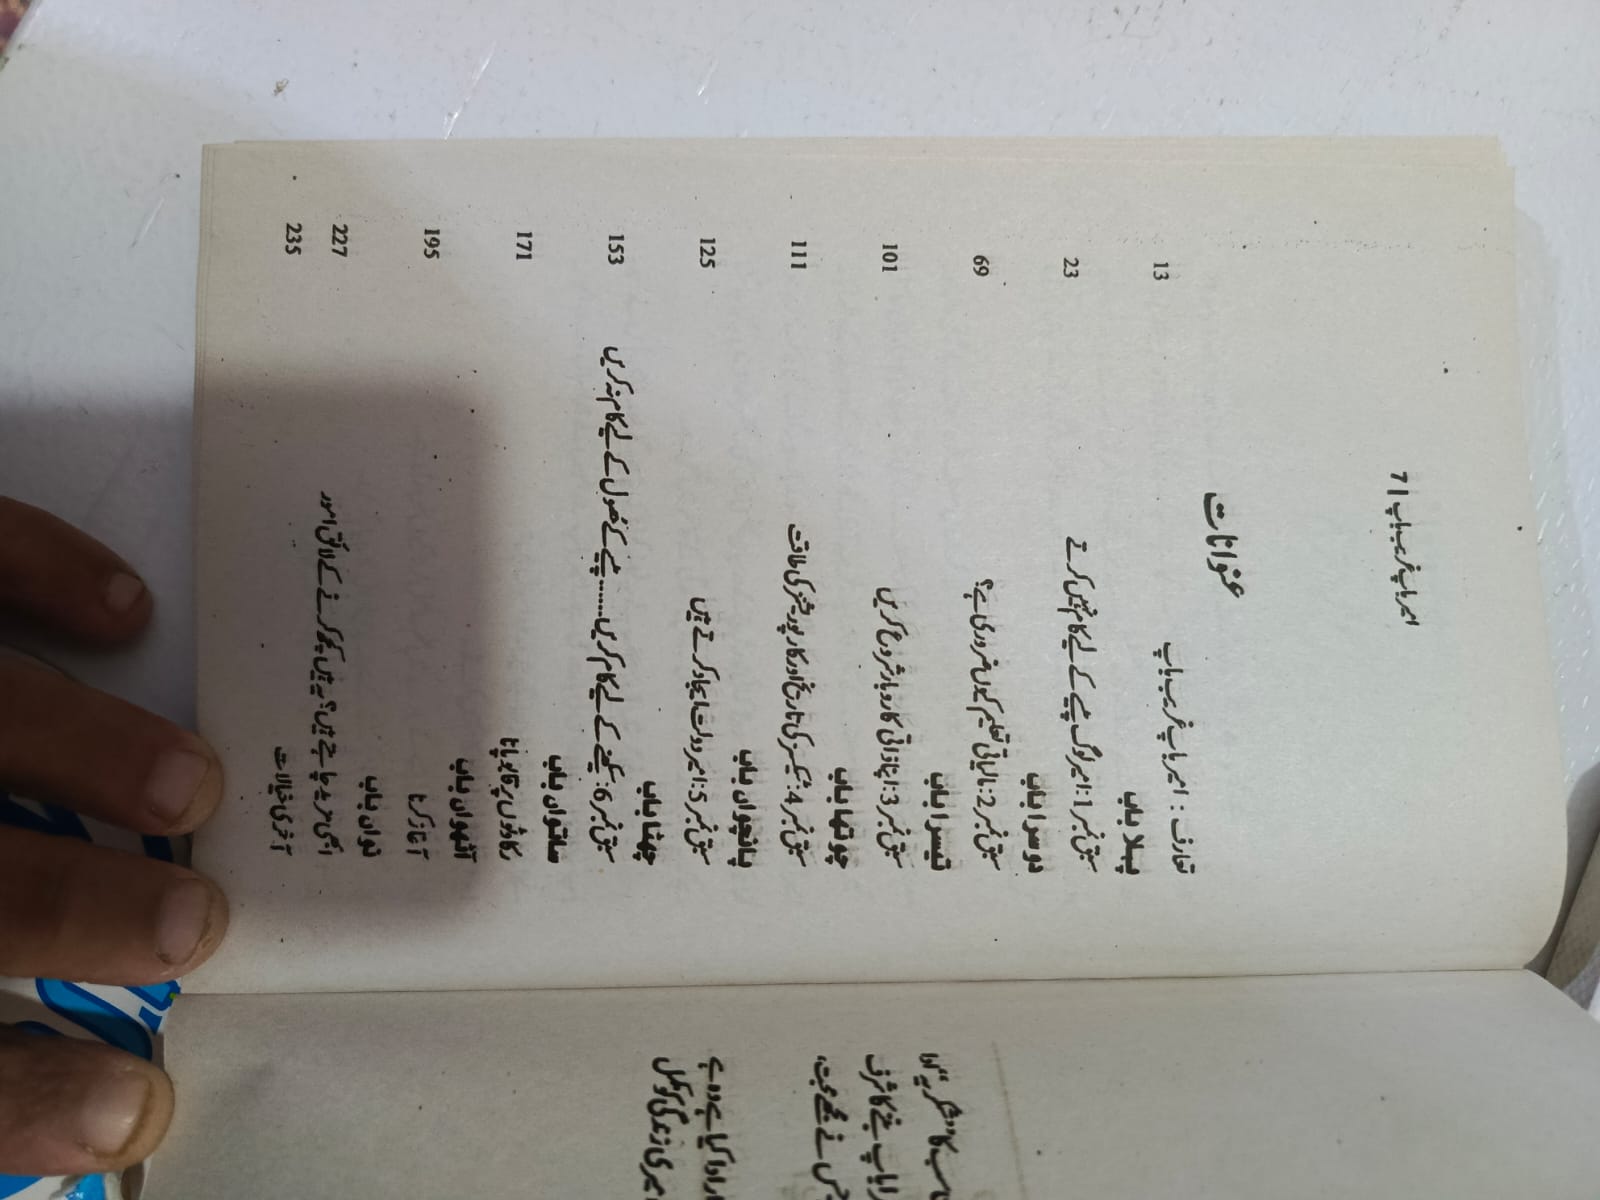 امیر باپ غریب باپ | 7
عنوانات
تعارف: امیر باپ غریب باپ 13
پہلا باب
سبق نمبر 1: امیر لوگ پیسے کے لیے کام نہیں کرتے 23
دوسرا باب
سبق نمبر 2: مالیاتی تعلیم کیوں ضروری ہے؟ 69
تیسرا باب
سبق نمبر 3: اپنا ذاتی کاروبار شروع کریں 101
چوتھا باب
سبق نمبر 4: ٹیکسز کی تاریخ اور کارپوریشنز کی طاقت 111
پانچواں باب
سبق نمبر 5: امیر دولت ایجاد کرتے ہیں 125
چھٹا باب
سبق نمبر 6: سیکھنے کے لیے کام کریں...... پیسے کے حصول کے لیے کام نہ کریں 153
ساتواں باب
رکاوٹوں پر قابو پانا 171
آٹھواں باب
آغاز کرنا 195
نواں باب
ابھی مزید چاہتے ہیں؟ یہ ہیں کچھ کرنے کے لائق امور 227
آخری خیالات 235
کا شکریہ ادا
باپ بننے کا شرف
نے مجھے محبت،
ادا کیا ہے وہ ہے
میری زندگی کو مکمل